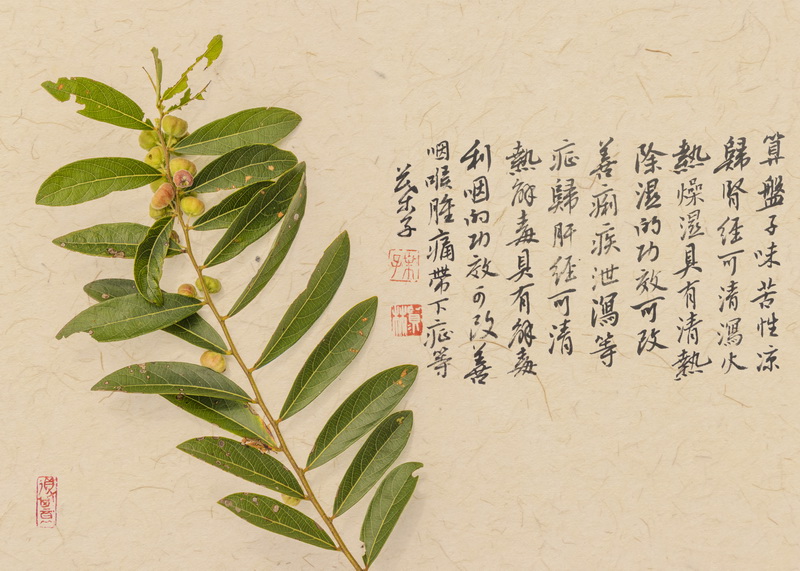 算盤子味苦性凉
歸腎经可清瀉火
熱燥湿具有清熱
除湿的功效可改
善痢疾泄瀉等
症歸肝经可清
熱解毒具有解毒
利咽的功效可改善
咽喉腫痛帶下症等